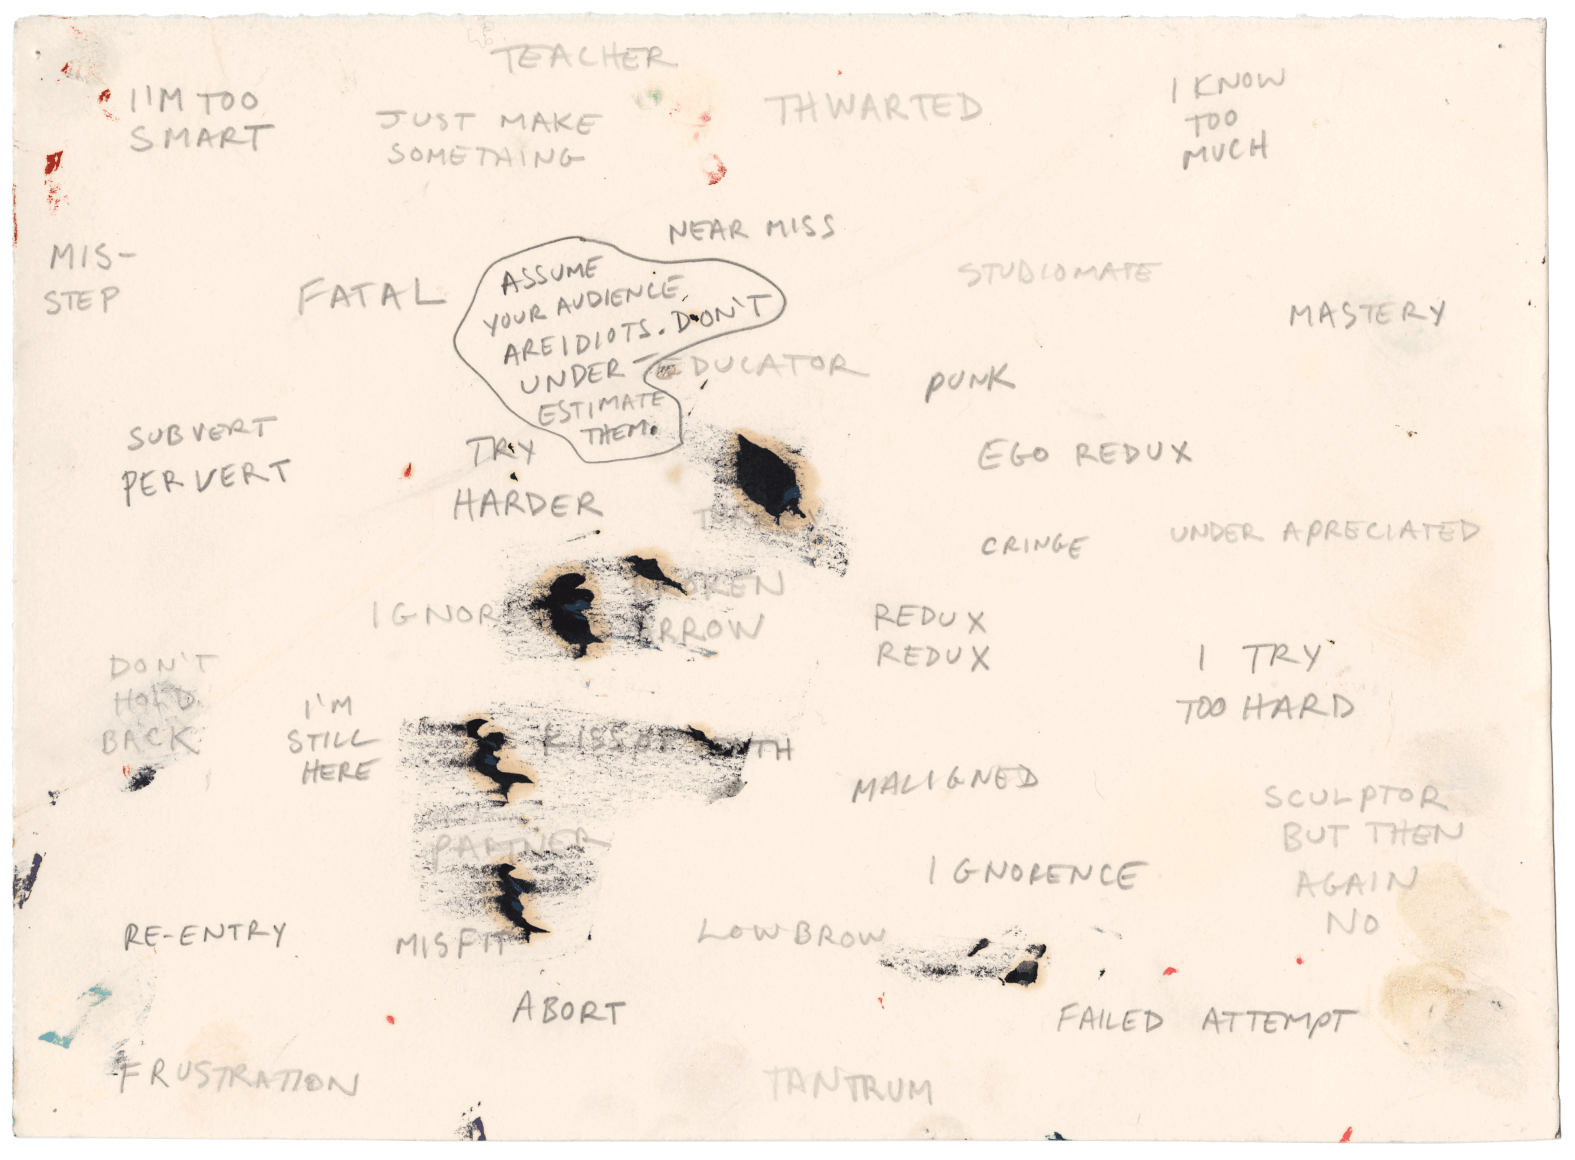 TEACHER
I'M TOO
SMART
JUST MAKE
SOMETHING
THWARTED
I KNOW
TOO
MUCH
NEAR MISS
MIS-
STEP
FATAL
ASSUME
YOUR AUDIENCE
ARE IDIOTS. DON'T
UNDER-
ESTIMATE
THEM.
STUDIOMATE
MASTERY
EDUCATOR
PUNK
SUBVERT
PERVERT
TRY
HARDER
EGO REDUX
CRINGE
UNDER APRECIATED
IGNOR
ARROW
REDUX
REDUX
I TRY
TOO HARD
DON'T
HOLD
BACK
I'M
STILL
HERE
KISS OF
TH
MALIGNED
SCULPTOR
BUT THEN
AGAIN
NO
PARTNER
IGNORENCE
RE-ENTRY
MISFIT
LOWBROW
ABORT
FAILED ATTEMPT
FRUSTRATION
TANTRUM